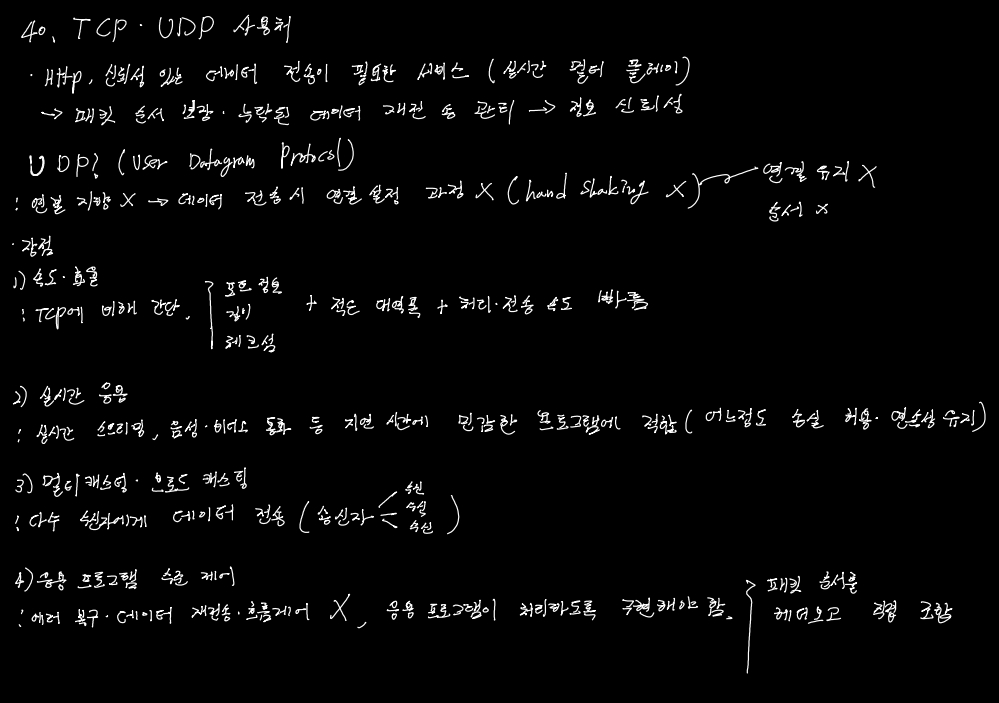 40. TCP · UDP 사용처
· Http, 신뢰성 있는 데이터 전송이 필요한 서비스 (실시간 멀티 플레이)
→ 패킷 순서 보장 · 누락된 데이터 재전송 관리 → 정보 신뢰성
UDP? (User Datagram Protocol)
: 연결 지향 X → 데이터 전송시 연결 설정 과정 X (hand shaking X)
연결 유지 X
순서 X
· 장점
1) 속도 · 효율
: TCP에 비해 간단,
포트 정보
길이
체크섬
+ 적은 대역폭 + 처리·전송 속도 빠름
2) 실시간 응용
: 실시간 스트리밍, 음성·비디오 통화 등 지연 시간에 민감한 프로그램에 적합 (어느정도 손실 허용·연속성 유지)
3) 멀티캐스팅 · 브로드 캐스팅
: 다수 수신자에게 데이터 전송 (송신자
수신
수신
수신 )
4) 응용 프로그램 수준 제어
: 에러 복구 · 데이터 재전송 · 흐름제어 X, 응용 프로그램이 처리하도록 구현해야 함.
패킷 순서를
헤더보고 직접 조합